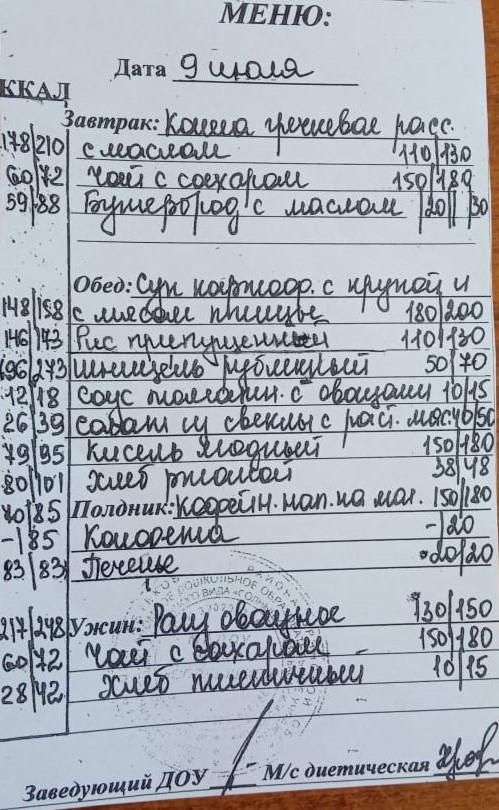 МЕНЮ:
Дата 9 июля
ККАЛ
Завтрак: Каша гречневая расс.
178/210 с маслом 110/130
60/72 Чай с сахаром 150/180
59/88 Бутерброд с маслом 20/30
Обед: Суп картоф. с крупой и
148/158 с мясом птицы 180/200
146/173 Рис припущенный 110/130
196/273 Шницель рубленный 50/70
12/18 Соус томатн. с овощами 10/15
26/39 салат из свеклы с раст. мас. 40/50
79/95 Кисель ягодный 150/180
80/101 Хлеб ржаной 38/48
70/85 Полдник: Кофейн. нап. на мол. 150/180
-/85 Конфета -/20
83/83 Печенье 20/20
217/248 Ужин: Рагу овощное 130/150
60/72 Чай с сахаром 150/180
28/42 Хлеб пшеничный 10/15
Заведующий ДОУ М/с диетическая